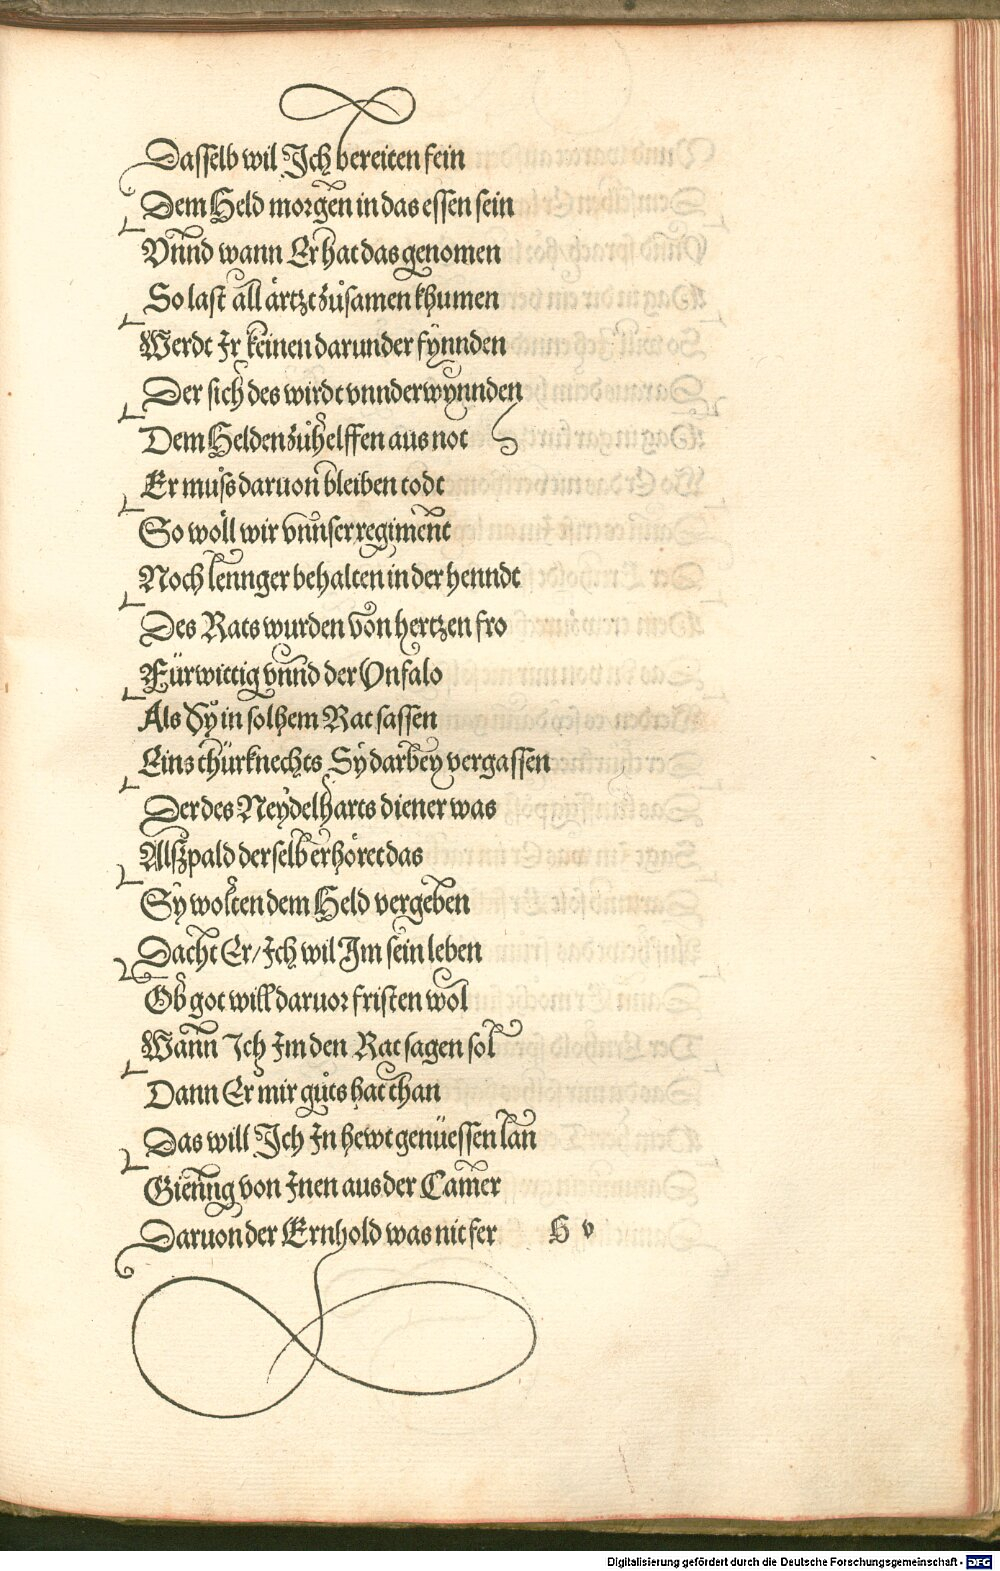 Dasselb wil Ich bereiten fein
Dem Held morgen in das essen sein
Vnnd wann Er hat das genomen
So last all ärtzt zůsamen khumen
Werdt Ir keinen darunder fynnden
Der sich des wirdt vnnderwynnden
Dem Helden zůhelffen aus not
Er muſs daruon bleiben todt
So wöll wir vnnser regiment
Noch lennger behalten in der henndt
Des Rats wurden von hertzen fro
Fürwittig vnnd der Vnfalo
Als Sy in solhem Rat sassen
Eins thürknechts Sy darbey vergassen
Der des Neydelharts diener was
Alſzpald derselb erhöret das
Sy wolten dem Held vergeben
Dacht Er/ Ich wil Im sein leben
Ob got will daruor fristen wol
Wann Ich Im den Rat sagen sol
Dann Er mir gůts hat than
Das will Ich In hewt genüessen lan
Gienng von Inen aus der Camer
Daruon der Ernhold was nit fer H v
Digitalisierung gefördert durch die Deutsche Forschungsgemeinschaft - DFG